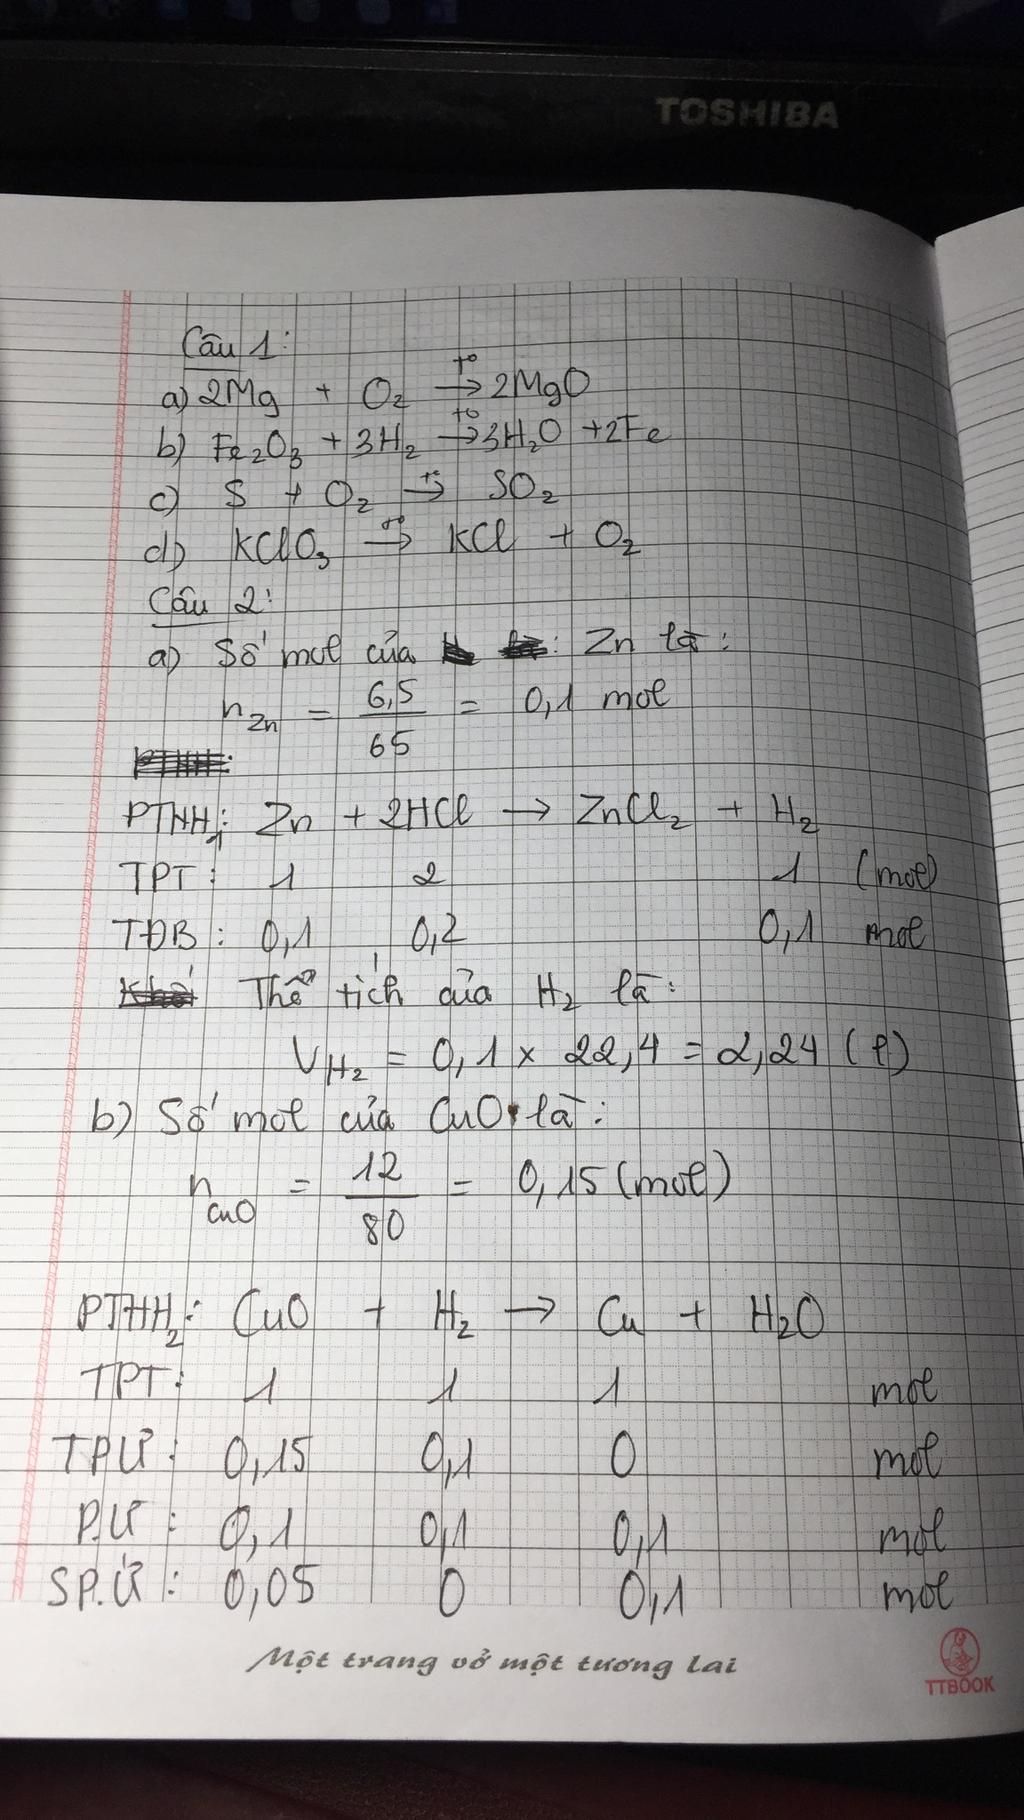 TOSHIBA
Câu 1:
a) 2Mg + O₂ →t° 2MgO
b) Fe₂O₃ + 3H₂ →t° 3H₂O + 2Fe
c) S + O₂ →t° SO₂
d) KClO₃ →t° KCl + O₂
Câu 2:
a) Số mol của : Zn là :
nZn = 6,5/65 = 0,1 mol
PTHH₁: Zn + 2HCl → ZnCl₂ + H₂
TPT: 1 2 1 (mol)
TĐB: 0,1 0,2 0,1 mol
Thể tích của H₂ là:
VH₂ = 0,1 × 22,4 = 2,24 (l)
b) Số mol của CuO là:
nCuO = 12/80 = 0,15 (mol)
PTHH₂: CuO + H₂ → Cu + H₂O
TPT: 1 1 1 mol
TPƯ: 0,15 0,1 0 mol
P.Ư: 0,1 0,1 0,1 mol
SP.Ứ: 0,05 0 0,1 mol
Một trang vở một tương lai
TTBOOK